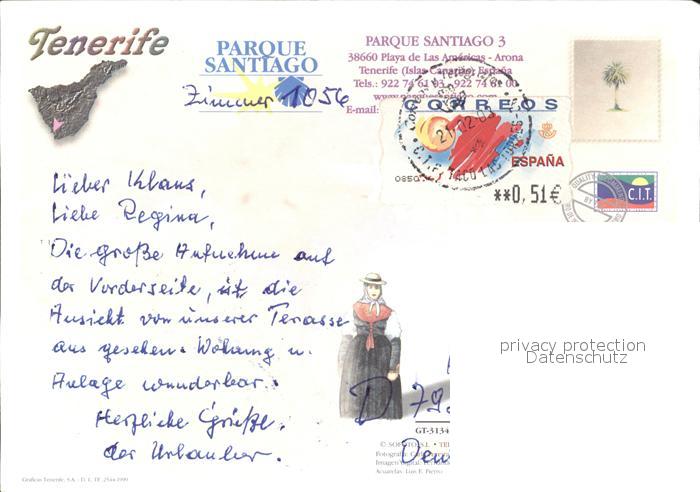 Tenerife
PARQUE
SANTIAGO
Zimmer 1056
PARQUE SANTIAGO 3
38660 Playa de Las Américas - Arona
Tenerife (Islas Canarias) España
Tels.: 922 74 61 03 - 922 74 61 00
E-mail:
CORREOS
ESPAÑA
**0,51€
C.I.T.
Lieber Klaus,
Liebe Regina,
Die große Aufnahme auf
der Vorderseite, ist die
Ansicht von unserer Terasse
aus gesehen. Wohung u.
Anlage wunderbar.
Herzliche Grüße.
der Urlauber.
privacy protection
Datenschutz
D 79
GT-3134
Gráficas Tenerife, S.A. - D. L. TF. 2544-1999
Acuarelas: Luis F. Pierro